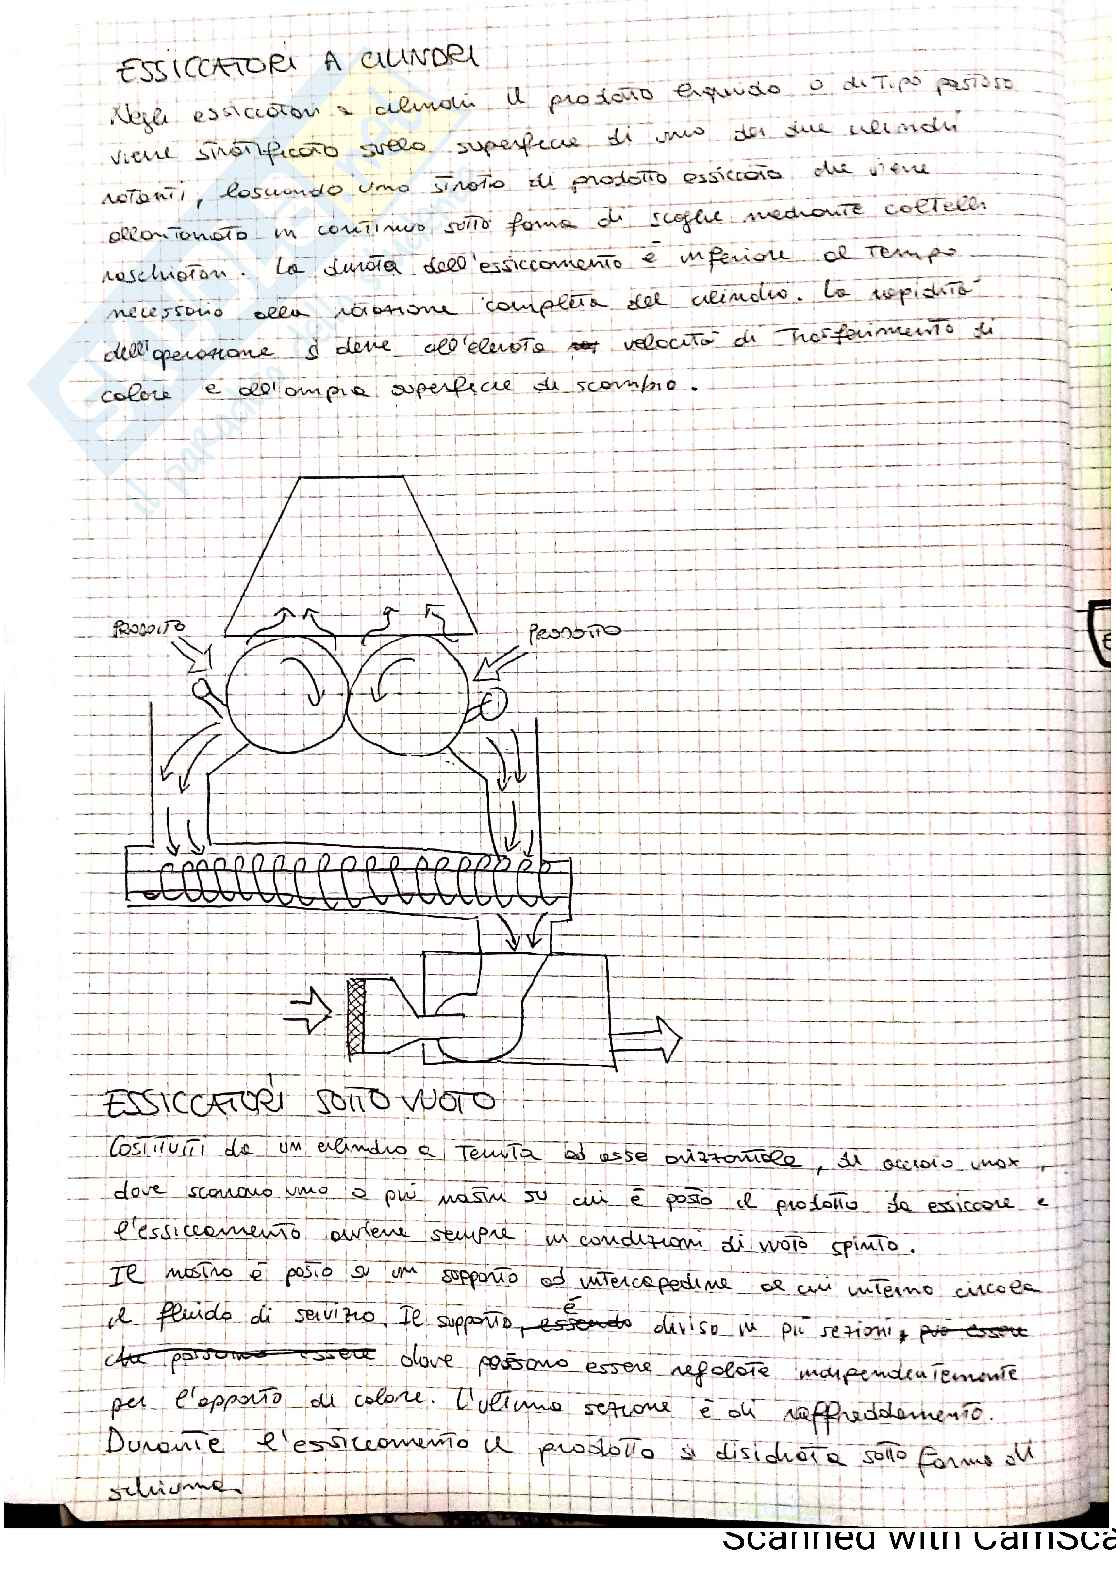 ESSICCATORI A CILINDRI
Negli essiccatori a cilindri il prodotto liquido o di tipo pastoso
viene stratificato sulla superficie di uno dei due cilindri
rotanti, lasciando uno strato di prodotto essiccato che viene
allontanato in continuo sotto forma di scaglie mediante coltelli
raschiatori. La durata dell'essiccamento è inferiore al tempo
necessario alla rotazione completa del cilindro. La rapidità
dell'operazione si deve all'elevata velocità di trasferimento di
calore e all'ampia superficie di scambio.
PRODOTTO
PRODOTTO
ESSICCATORI SOTTO VUOTO
Costituiti da un cilindro a tenuta ad asse orizzontale, di acciaio inox,
dove scorrono uno o più nastri su cui è posto il prodotto da essiccare e
l'essiccamento avviene sempre in condizioni di vuoto spinto.
Il nastro è posto su un supporto ad intercapedine al cui interno circola
il fluido di servizio. Il supporto, essendo è diviso in più sezioni, può essere
che possono essere dove possono essere regolate indipendentemente
per l'apporto di calore. L'ultima sezione è di raffreddamento.
Durante l'essiccamento il prodotto si disidrata sotto forma di
schiuma.
Scanned with CamSca